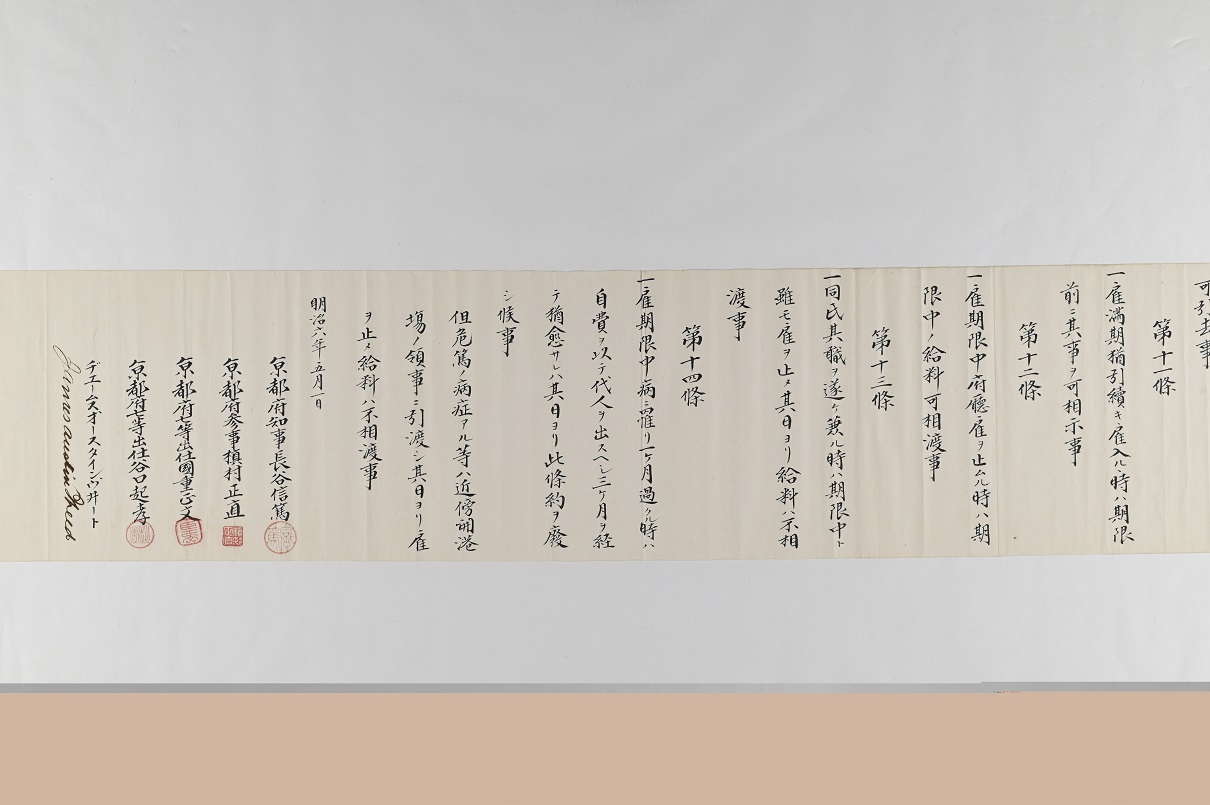 可引去事
第十一條
一雇満期猶引續キ雇入ル時ハ期限
前ニ其事ヲ可相示事
第十二條
一雇期限中府廳雇ヲ止ムル時ハ期
限中ノ給料可相渡事
第十三條
一同氏其職ヲ遂ケ兼ル時ハ期限中ト
雖モ雇ヲ止メ其日ヨリ給料ハ不相
渡事
第十四條
一雇期限中病ニ罹リ一ケ月過クル時ハ
自費ヲ以テ代人ヲ出スヘシ三ケ月ヲ経
テ猶愈サレハ其日ヨリ此條約ヲ廢
シ候事
但危篤ノ病症アル等ハ近傍開港
場ノ領事ニ引渡シ其日ヨリ雇
ヲ止メ給料ハ不相渡事
明治六年五月一日
京都府知事長谷信篤
京都府参事槇村正直
京都府七等出仕國重正文
京都府七等出仕谷口起孝
ヂエームスオースタインウヰート
James Austin Wheed